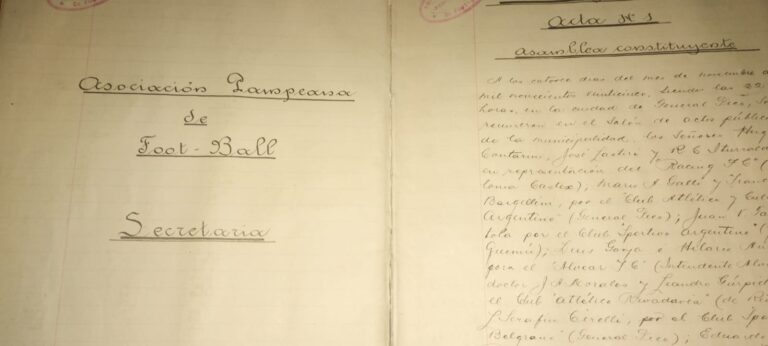 Asociación Pampeana
de
Foot-Ball
Secretaria
Acta Nº 1
Asamblea constituyente
A los catorce dias del mes de noviembre
mil novecientos siendo las 22
horas, en la ciudad de General Pico,
reunieron en el Salón de actos públic
de la municipalidad, los Señores
Cantarini, José y R. C. Iturral
en representación del "Racing F. C" (
lonia Castex); Mario A. Galli y
por el "Club Atlético y Cul
Argentino" (General Pico); Juan V.
por el Club "Sportivo Argentino" (
Quemú); Luis e Hilario
para el "Alvear F C" (Intendente Alv
doctor J. A. Morales y Leandro
el Club "Atlético Rivadavia" (de
J. Serafin Cerelli, por el Club Spo
Belgrano" (General Pico); Eduardo